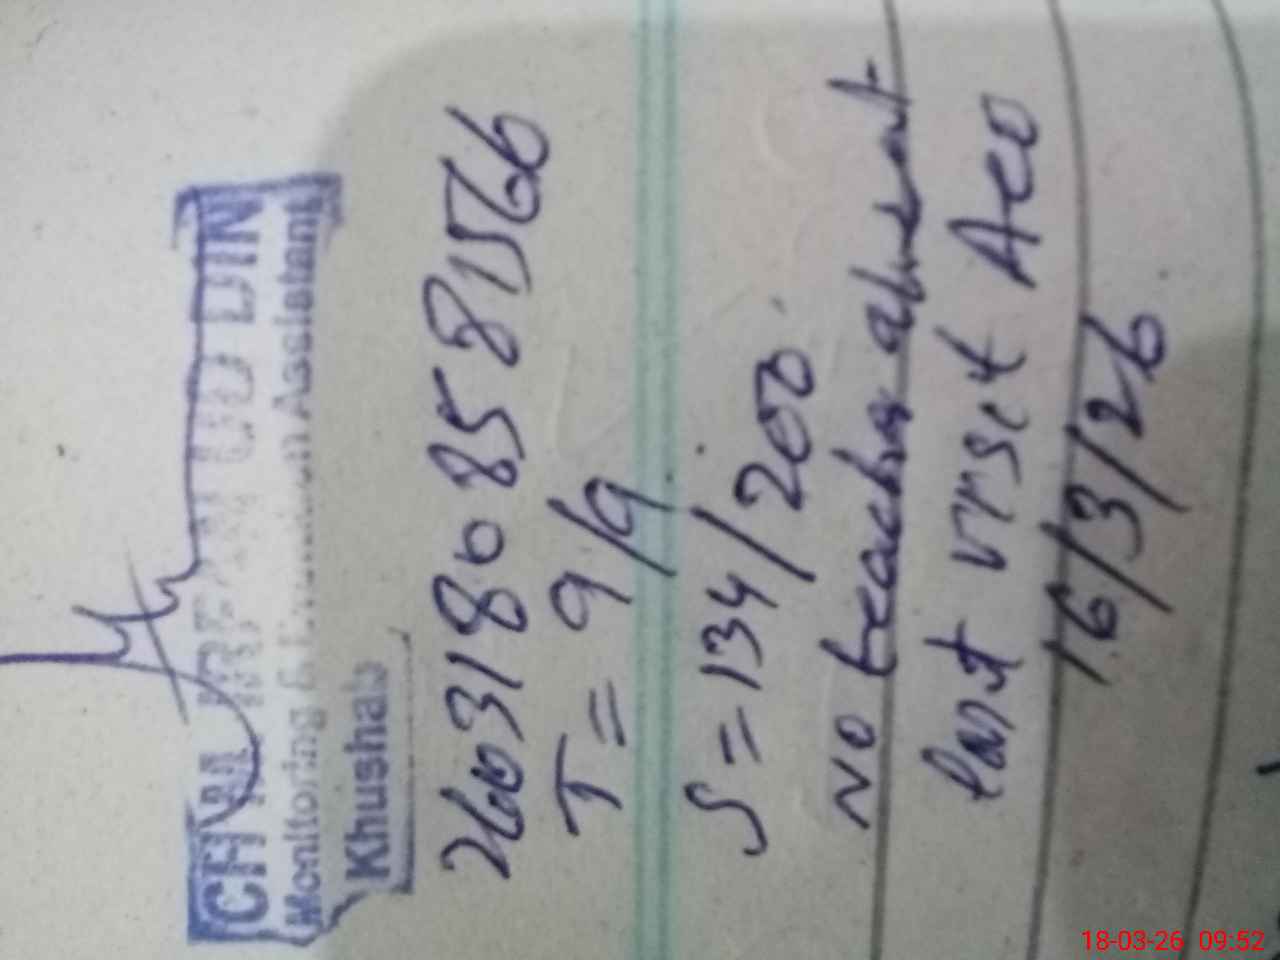 CH. M. IRFAN UD DIN
Monitoring & Evaluation Assistant
Khushab
26031808581566
T = 9/9
S = 134/200
No teacher absent
Last visit AEO
16/3/26
18-03-26 09:52